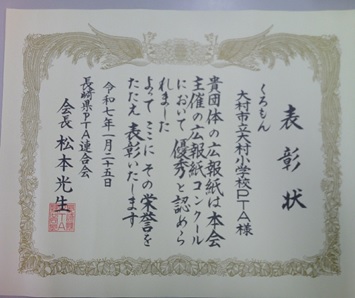 表彰状
くろもん
大村市立大村小学校PTA様
貴団体の広報紙は本会
主催の広報紙コンクール
において優秀と認めら
れました
よってここにその栄誉を
たたえ表彰いたします
令和七年一月二十五日
長崎県PTA連合会
会長 松本光生